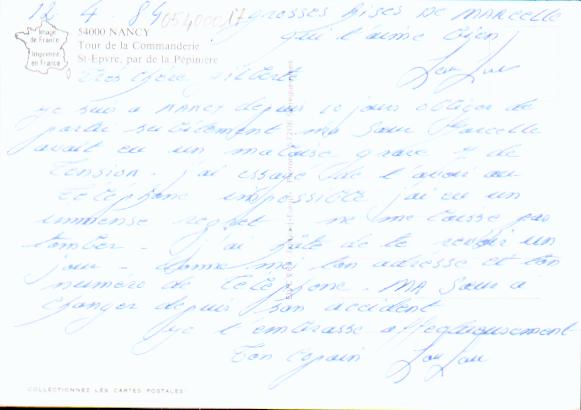 12.4.84
05400017
grosses Bises DE MARCELLE
qui t'aime bien
Lou Lou
Image
de France
Imprimée
en France
54000 NANCY
Tour de la Commanderie
St-Epvre, par de la Pépinière
Très chère Gilberte
je suis a NANCY depuis 10 jours obliger de
partir subitement ma Sœur Marcelle
avait eu un malaise grave 7 de
Tension. j'ai essaye de t'avoir au
Téléphone impossible j'ai eu un
immense regret ne me laisse pas
tomber - j'ai hâte de te revoir un
jour - donne moi ton adresse et ton
numéro de Téléphone. MA Sœur a
changer depuis son accident
je t'embrasse affectueusement
Ton copain Lou Lou
COLLECTIONNEZ LES CARTES POSTALES!